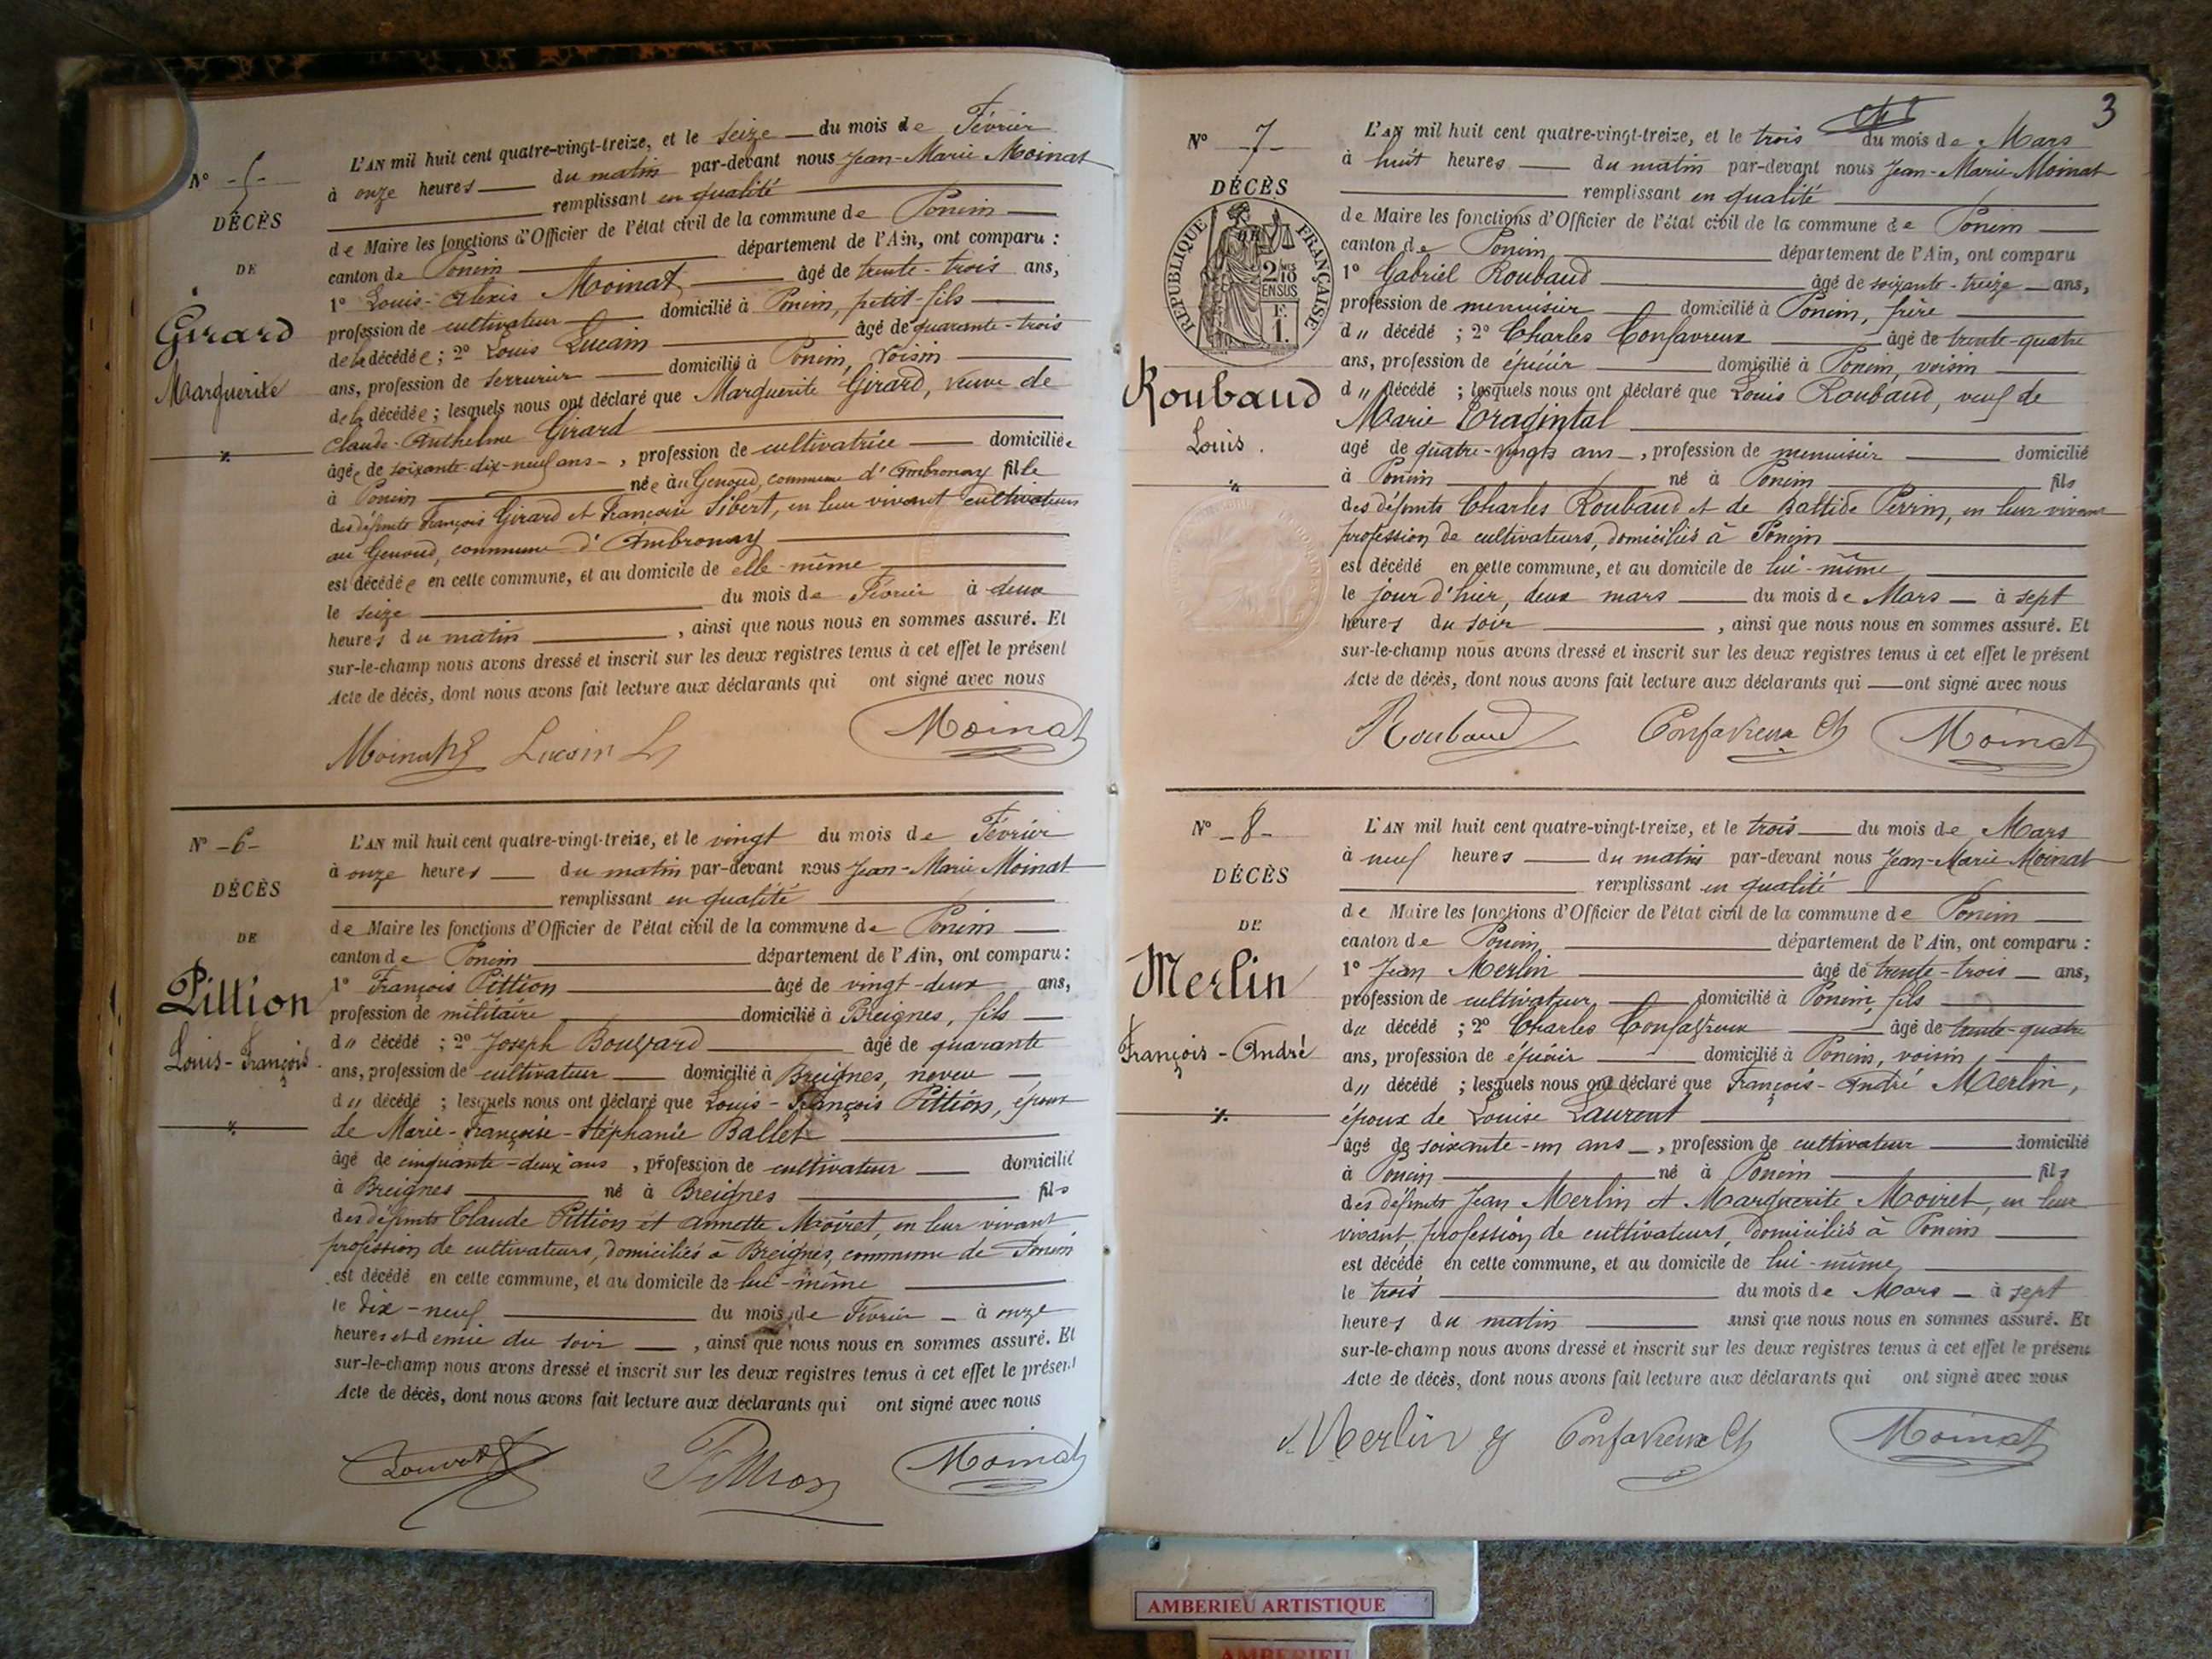 N° -5-
DÉCÈS
DE
Girard
Marguerite
L'AN mil huit cent quatre-vingt-treize, et le seize du mois de Février
à onze heures du matin par-devant nous Jean-Marie Moinat
remplissant en qualité
de Maire les fonctions d'Officier de l'état civil de la commune de Poncin
canton de Poncin département de l'Ain, ont comparu :
1° Louis-Alexis Moinat âgé de trente-trois ans,
profession de cultivateur domicilié à Poncin, petit-fils
de la décédée ; 2° Louis Lucain âgé de quarante-trois
ans, profession de serrurier domicilié à Poncin, voisin
de la décédée ; lesquels nous ont déclaré que Marguerite Girard, veuve de
Claude-Anthelme Girard
âgée de soixante-dix-neuf ans , profession de cultivatrice domiciliée
à Poncin née au Genoud, commune d'Ambronay fille
des défunts François Girard et Françoise Sibert, en leur vivant cultivateurs
au Genoud, commune d'Ambronay
est décédée en cette commune, et au domicile de elle-même
le seize du mois de Février à deux
heures du matin , ainsi que nous nous en sommes assuré. Et
sur-le-champ nous avons dressé et inscrit sur les deux registres tenus à cet effet le présent
Acte de décès, dont nous avons fait lecture aux déclarants qui ont signé avec nous
Moinat Lucain L Moinat
N° -6-
DÉCÈS
DE
Pittion
Louis-François
L'AN mil huit cent quatre-vingt-treize, et le vingt du mois de Février
à onze heures du matin par-devant nous Jean-Marie Moinat
remplissant en qualité
de Maire les fonctions d'Officier de l'état civil de la commune de Poncin
canton de Poncin département de l'Ain, ont comparu :
1° François Pittion âgé de vingt-deux ans,
profession de militaire domicilié à Breignes, fils
d" décédé ; 2° Joseph Bouvard âgé de quarante
ans, profession de cultivateur domicilié à Breignes, neveu
d" décédé ; lesquels nous ont déclaré que Louis-François Pittion, époux
de Marie-Françoise-Stéphanie Ballet
âgé de cinquante-deux ans , profession de cultivateur domicilié
à Breignes né à Breignes fils
des défunts Claude Pittion et Annette Moiret, en leur vivant
profession de cultivateurs, domiciliés à Breignes, commune de Poncin
est décédé en cette commune, et au domicile de lui-même
le dix-neuf du mois de Février à onze
heures et demie du soir , ainsi que nous nous en sommes assuré. Et
sur-le-champ nous avons dressé et inscrit sur les deux registres tenus à cet effet le présent
Acte de décès, dont nous avons fait lecture aux déclarants qui ont signé avec nous
Pittion Moinat
3
N° -7-
DÉCÈS
RÉPUBLIQUE FRANÇAISE
2/10 MES
EN SUS
F.
1.
Roubaud
Louis
L'AN mil huit cent quatre-vingt-treize, et le trois du mois de Mars
à huit heures du matin par-devant nous Jean-Marie Moinat
remplissant en qualité
de Maire les fonctions d'Officier de l'état civil de la commune de Poncin
canton de Poncin département de l'Ain, ont comparu
1° Gabriel Roubaud âgé de soixante-treize ans,
profession de menuisier domicilié à Poncin, frère
d" décédé ; 2° Charles Confavreux âgé de trente-quatre
ans, profession de épicier domicilié à Poncin, voisin
d" décédé ; lesquels nous ont déclaré que Louis Roubaud, veuf de
Marie
agé de quatre-vingts ans , profession de menuisier domicilié
à Poncin né à Poncin fils
des défunts Charles Roubaud et de Baltide Perrin, en leur vivant
profession de cultivateurs, domiciliés à Poncin
est décédé en cette commune, et au domicile de lui-même
le jour d'hier, deux mars du mois de Mars à sept
heures du soir , ainsi que nous nous en sommes assuré. Et
sur-le-champ nous avons dressé et inscrit sur les deux registres tenus à cet effet le présent
Acte de décès, dont nous avons fait lecture aux déclarants qui ont signé avec nous
Roubaud Confavreux Ch Moinat
N° -8-
DÉCÈS
DE
Merlin
François-André
L'AN mil huit cent quatre-vingt-treize, et le trois du mois de Mars
à neuf heures du matin par-devant nous Jean-Marie Moinat
remplissant en qualité
de Maire les fonctions d'Officier de l'état civil de la commune de Poncin
canton de Poncin département de l'Ain, ont comparu :
1° Jean Merlin âgé de trente-trois ans,
profession de cultivateur domicilié à Poncin, fils
du décédé ; 2° Charles Confavreux âgé de trente-quatre
ans, profession de épicier domicilié à Poncin, voisin
d" décédé ; lesquels nous ont déclaré que François-André Merlin,
époux de Louise Laurent
âgé de soixante-un ans , profession de cultivateur domicilié
à Poncin né à Poncin fils
des défunts Jean Merlin et Marguerite Moiret, en leur
vivant, profession de cultivateurs, domiciliés à Poncin
est décédé en cette commune, et au domicile de lui-même
le trois du mois de Mars à sept
heures du matin ainsi que nous nous en sommes assuré. Et
sur-le-champ nous avons dressé et inscrit sur les deux registres tenus à cet effet le présent
Acte de décès, dont nous avons fait lecture aux déclarants qui ont signé avec nous
Merlin Confavreux Ch Moinat
AMBERIEU ARTISTIQUE
AMBERIEU